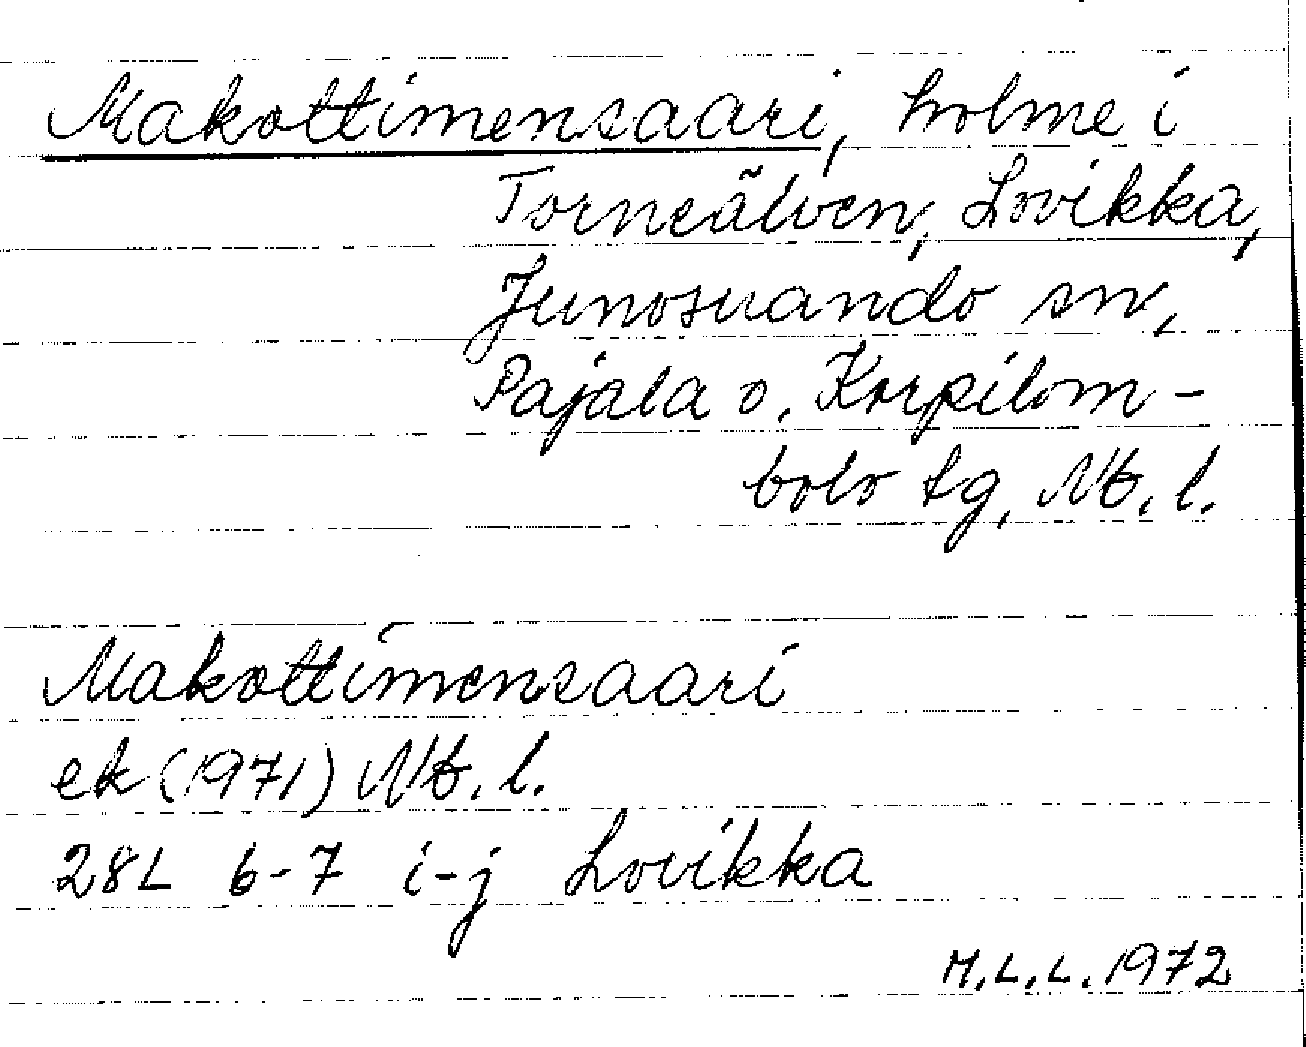 Makottimensaari, holme i
Torneälven, Lovikka,
Junosuando sn,
Pajala o. Korpilom-
bolo tg, Nb. l.
Makottimensaari
ek (1971) Nb. l.
28L 6-7 i-j Lovikka
M.L.L. 1972